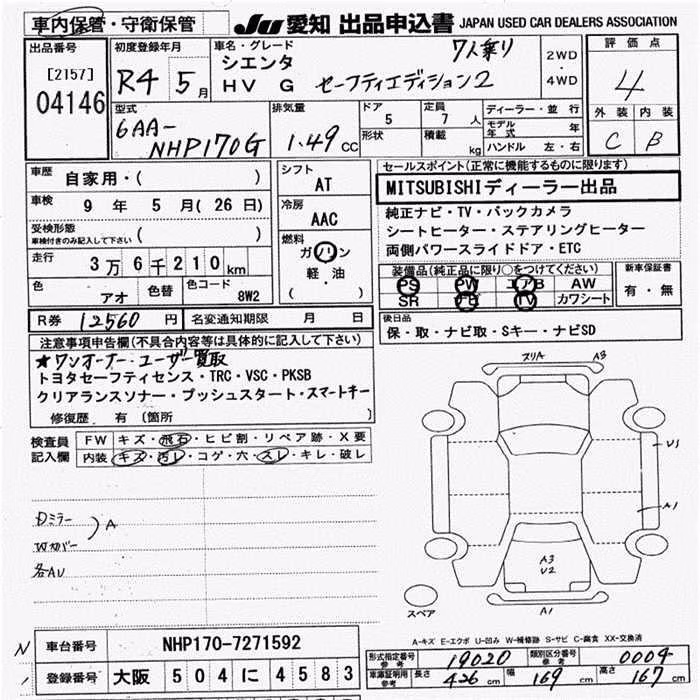 車内保管・守衛保管 JU 愛知 出品申込書 JAPAN USED CAR DEALERS ASSOCIATION
出品番号 [2157] 04146
初度登録年月 R4 5月
車名・グレード シエンタ 7人乗り
HV G セーフティエディション2
2WD・4WD
評価点 4
外装 内装
C B
型式 6AA-NHP170G
排気量 1.49 CC
ドア 5 定員 7人
形状 積載 kg
ディーラー・並行
モデル年式 年
ハンドル 左・右
車歴 自家用・( )
車検 9年 5月(26日)
受検形態 車検付きのみ記入して下さい ( )
走行 3万6千210km
色 アオ 色替 色コード 8W2
シフト AT
冷房 AAC
燃料 ガソリン 軽・油 ( )
セールスポイント(正常に機能するものに限ります)
MITSUBISHIディーラー出品
純正ナビ・TV・バックカメラ
シートヒーター・ステアリングヒーター
両側パワースライドドア・ETC
装備品(純正品に限り○をつけてください)
PS PW エアB AW
SR ナビ TV カワシート
新車保証書 有・無
R券 12560円 名変通知期限 月 日
後日品
保・取・ナビ取・Sキー・ナビSD
注意事項申告欄(不具合内容等は具体的に記入して下さい)
★ワンオーナー・ユーザー買取
トヨタセーフティセンス・TRC・VSC・PKSB
クリアランスソナー・プッシュスタート・スマートキー
修復歴 有 [箇所 ]
検査員記入欄
FW キズ・飛石・ヒビ割・リペア跡・X要
内装 キズ・汚レ・コゲ・穴・スレ・キレ・破レ
Dミラー
Wカバー
) A
各AU
スリA A3
U1
A1
A3
U2
A1
スペア
A-キズ E-エクボ U-凹み W-補修跡 S-サビ C-腐食 XX-交換済
車台番号 NHP170-7271592
登録番号 大阪 504 に 4583
形式指定番号 参考 19020 類別区分番号 参考 0004
車庫証明用 参考 長さ 426 cm 幅 169 cm 高さ 167 cm